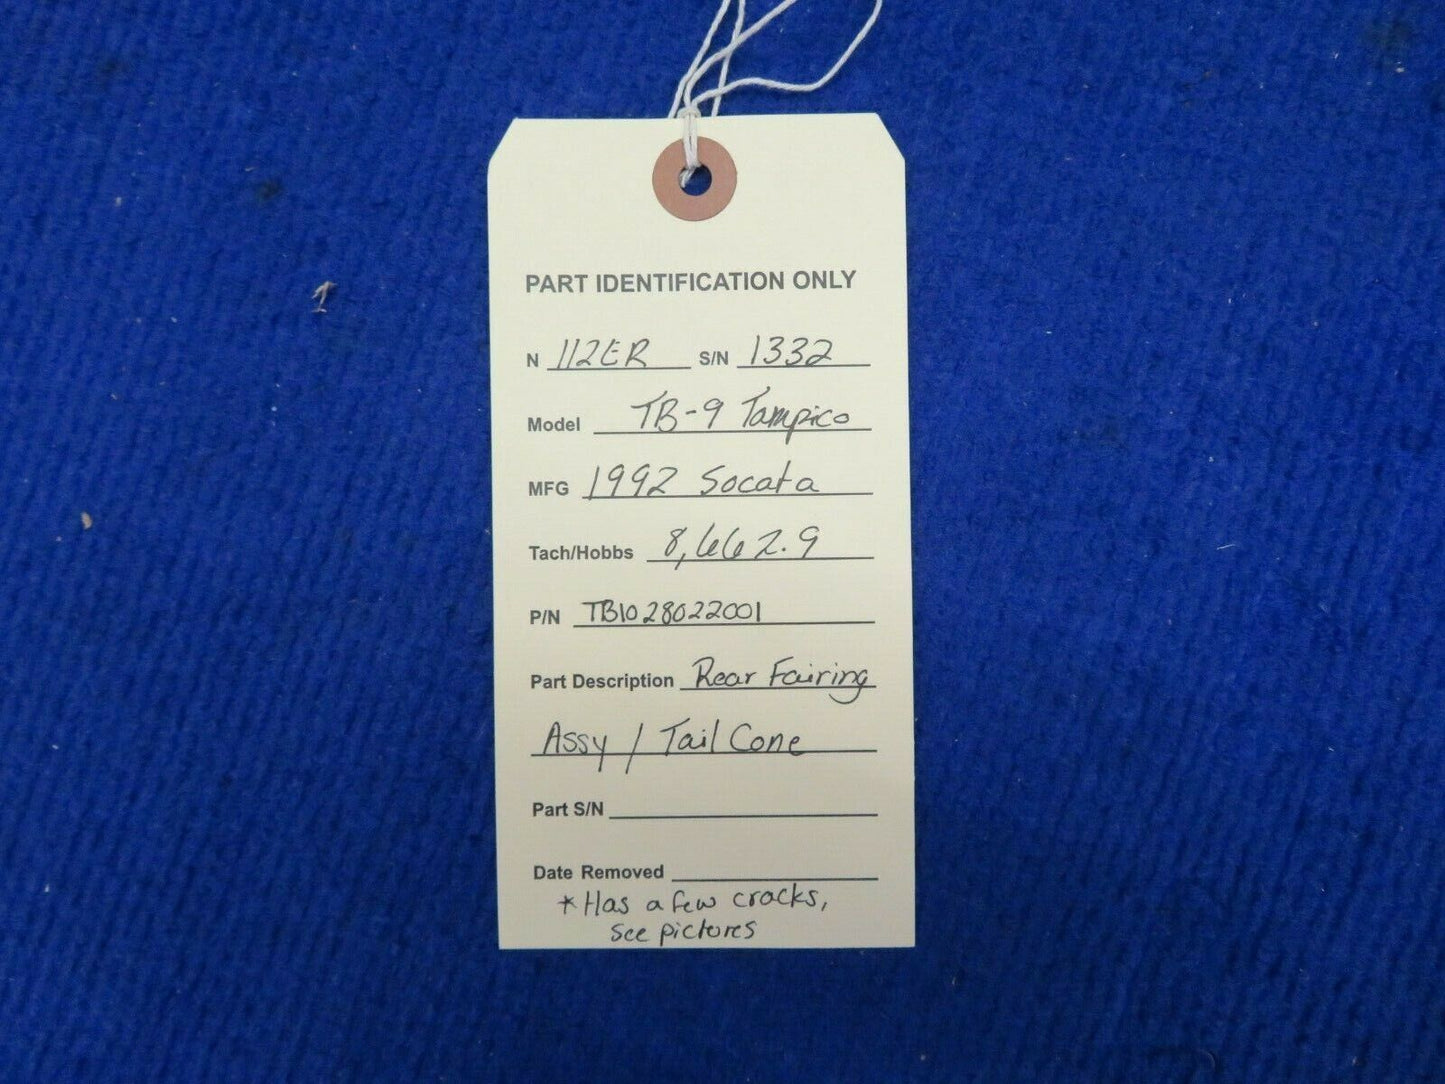 PART IDENTIFICATION ONLY
N 112ER S/N 1332
Model TB-9 Tampico
MFG 1992 Socata
Tach/Hobbs 8,662.9
P/N TB1028022001
Part Description Rear Fairing
Assy / Tail Cone
Part S/N
Date Removed
*Has a few cracks,
see pictures